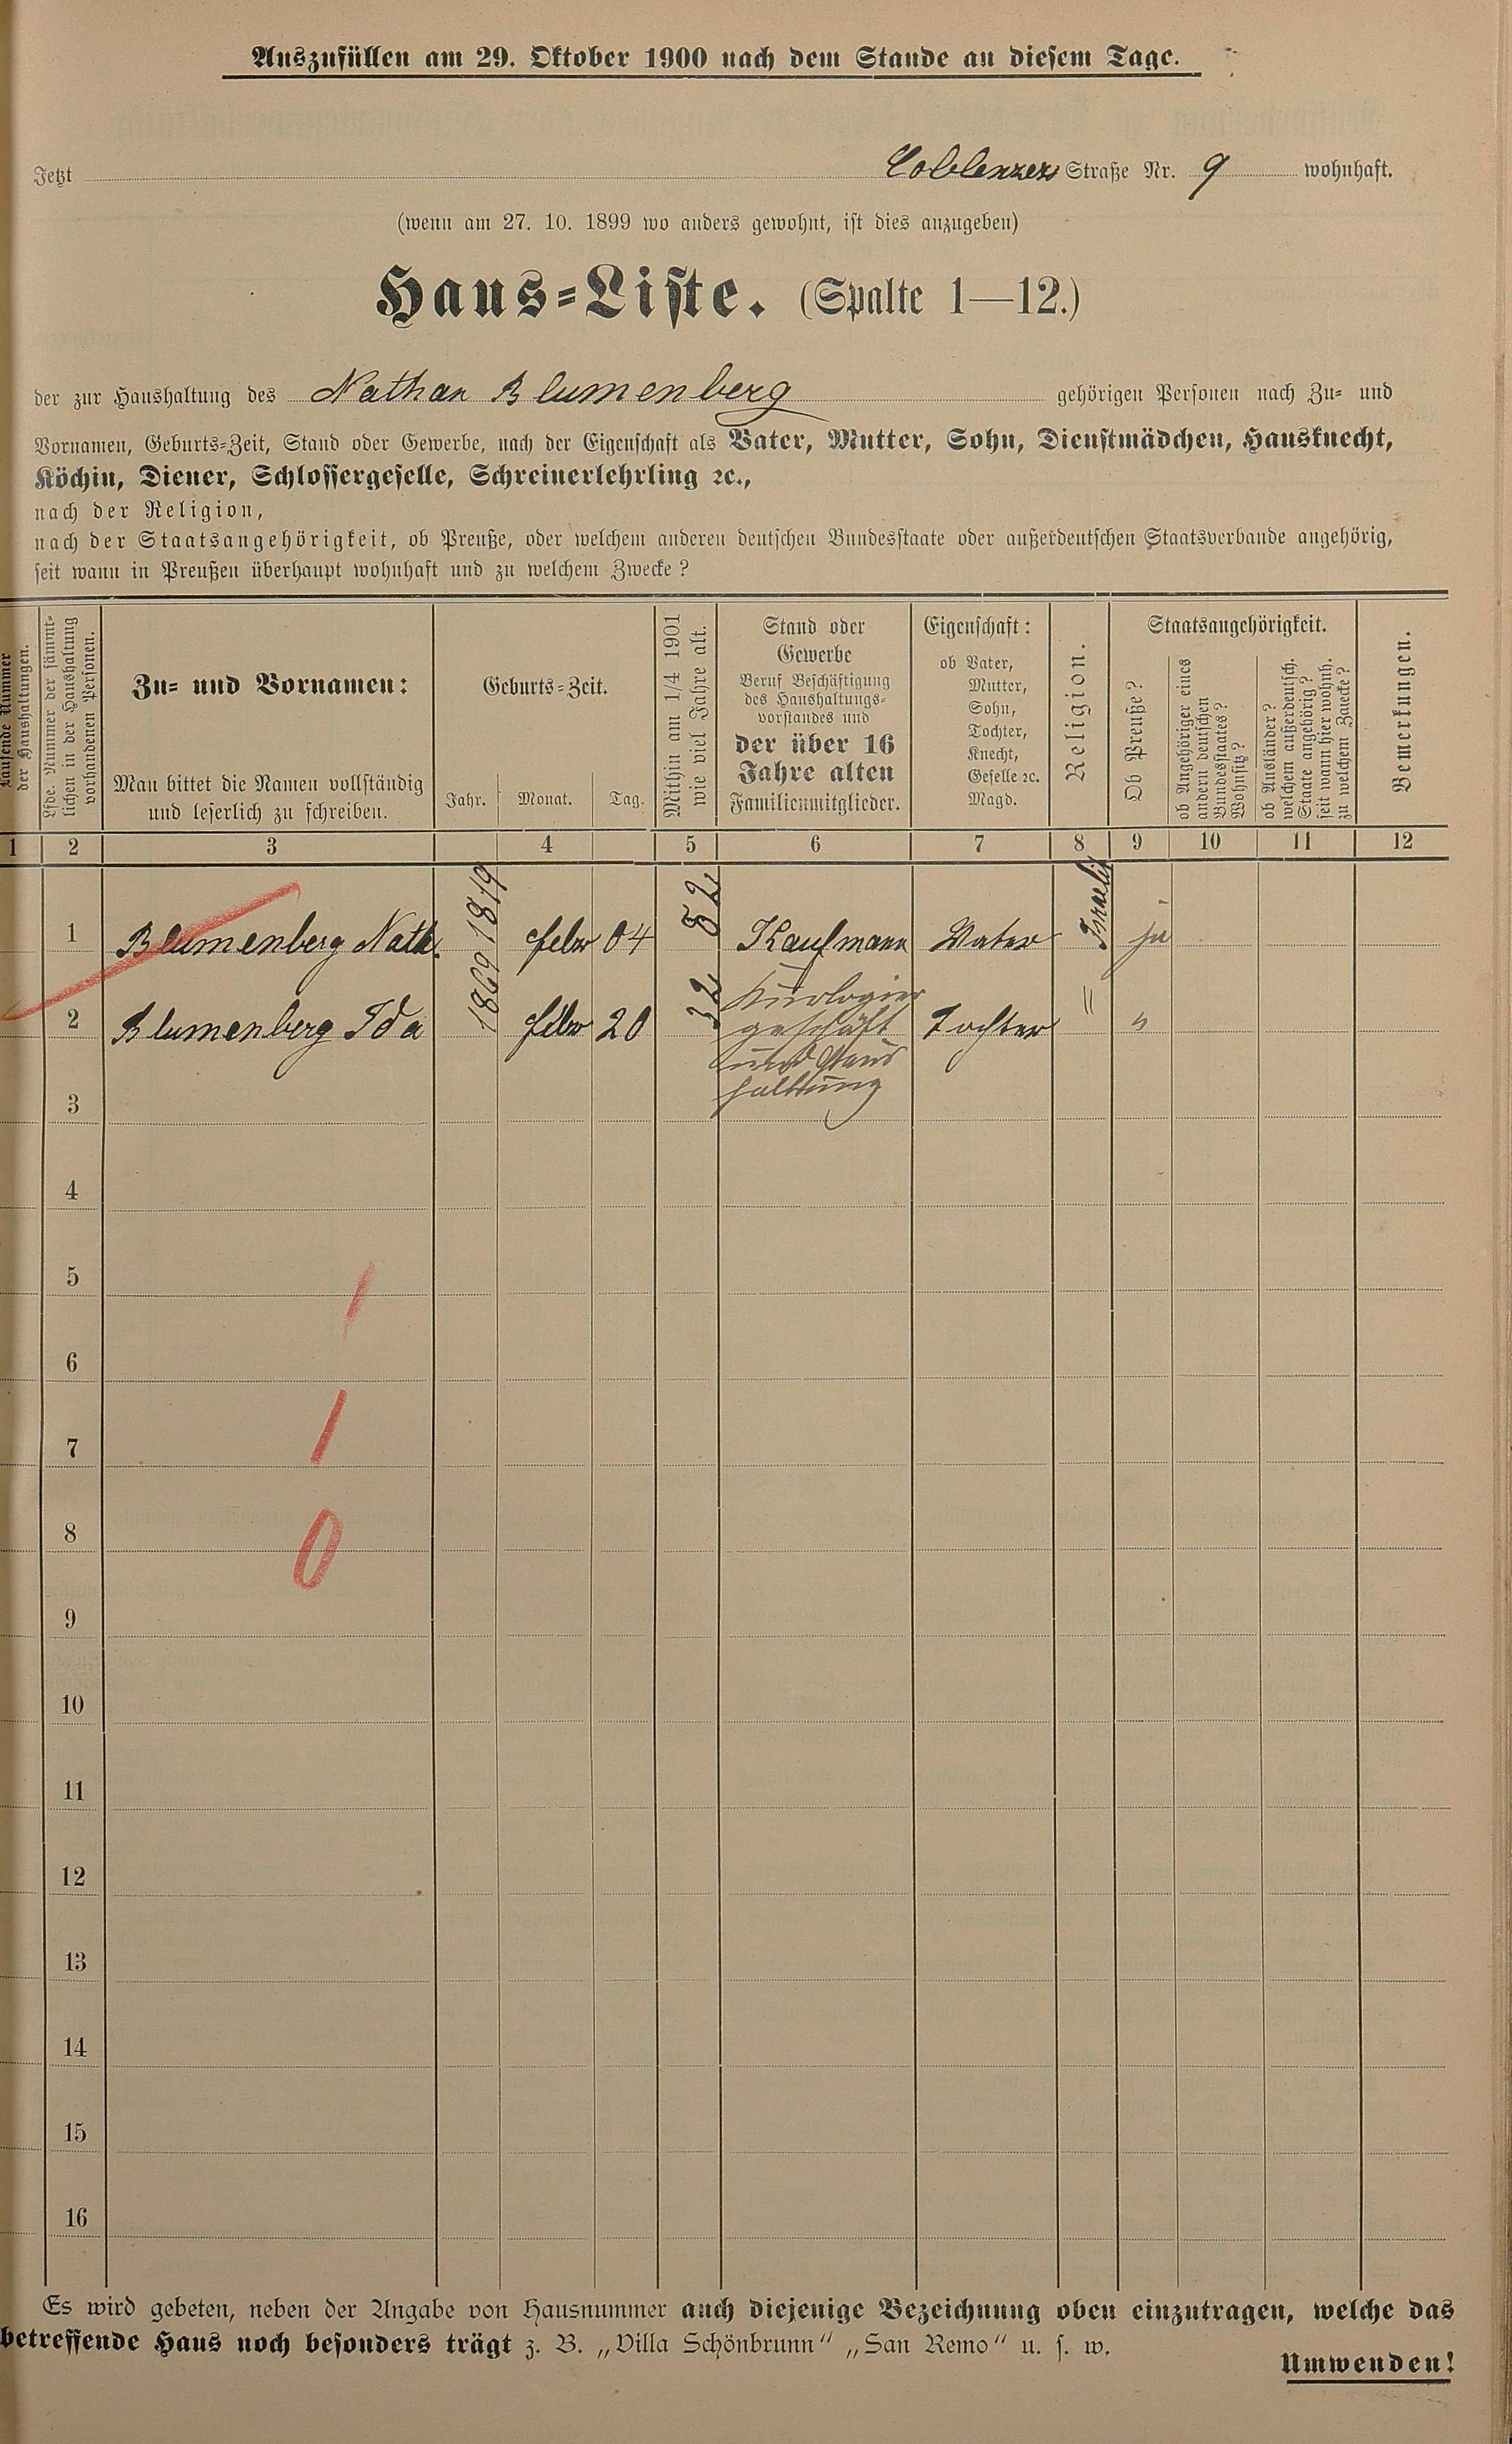 Auszufüllen am 29. Oktober 1900 nach dem Stande an diesem Tage.
Jetzt Coblenzer Straße Nr. 9 wohnhaft.
(wenn am 27. 10. 1899 wo anders gewohnt, ist dies anzugeben)
Haus-Liste. (Spalte 1—12.)
der zur Haushaltung des Nathan Blumenberg gehörigen Personen nach Zu- und
Vornamen, Geburts-Zeit, Stand oder Gewerbe, nach der Eigenschaft als Vater, Mutter, Sohn, Dienstmädchen, Hausknecht,
Köchin, Diener, Schlossergeselle, Schreinerlehrling ꝛc.,
nach der Religion,
nach der Staatsangehörigkeit, ob Preuße, oder welchem anderen deutschen Bundesstaate oder außerdeutschen Staatsverbande angehörig,
seit wann in Preußen überhaupt wohnhaft und zu welchem Zwecke?
Laufende Nummer
der Haushaltungen.
Lfde. Nummer der sämmt-
lichen in der Haushaltung
vorhandenen Personen.
Zu- und Vornamen:
Man bittet die Namen vollständig
und leserlich zu schreiben.
Geburts-Zeit.
Jahr. Monat. Tag.
Mithin am 1/4 1901
wie viel Jahre alt.
Stand oder
Gewerbe
Beruf Beschäftigung
des Haushaltungs-
vorstandes und
der über 16
Jahre alten
Familienmitglieder.
Eigenschaft:
ob Vater,
Mutter,
Sohn,
Tochter,
Knecht,
Geselle ꝛc.
Magd.
Religion.
Staatsangehörigkeit.
Ob Preuße?
ob Angehöriger eines
andern deutschen
Bundesstaates?
Wohnsitz?
ob Ausländer?
welchem außerdeutsch.
Staate angehörig?
seit wann hier wohnh.
zu welchem Zwecke?
Bemerkungen.
1 2 3 4 5 6 7 8 9 10 11 12
1 Blumenberg Nath. 1819 Febr 04 82 Kaufmann Vater Israelit ja
2 Blumenberg Ida 1869 Febr 20 32 geschäft Tochter " "
und Haus
haltung
3
4
5
6
7
8
9
10
11
12
13
14
15
16
1
1
0
Es wird gebeten, neben der Angabe von Hausnummer auch diejenige Bezeichnung oben einzutragen, welche das
betreffende Haus noch besonders trägt z. B. „Villa Schönbrunn“ „San Remo“ u. s. w.
Umwenden!